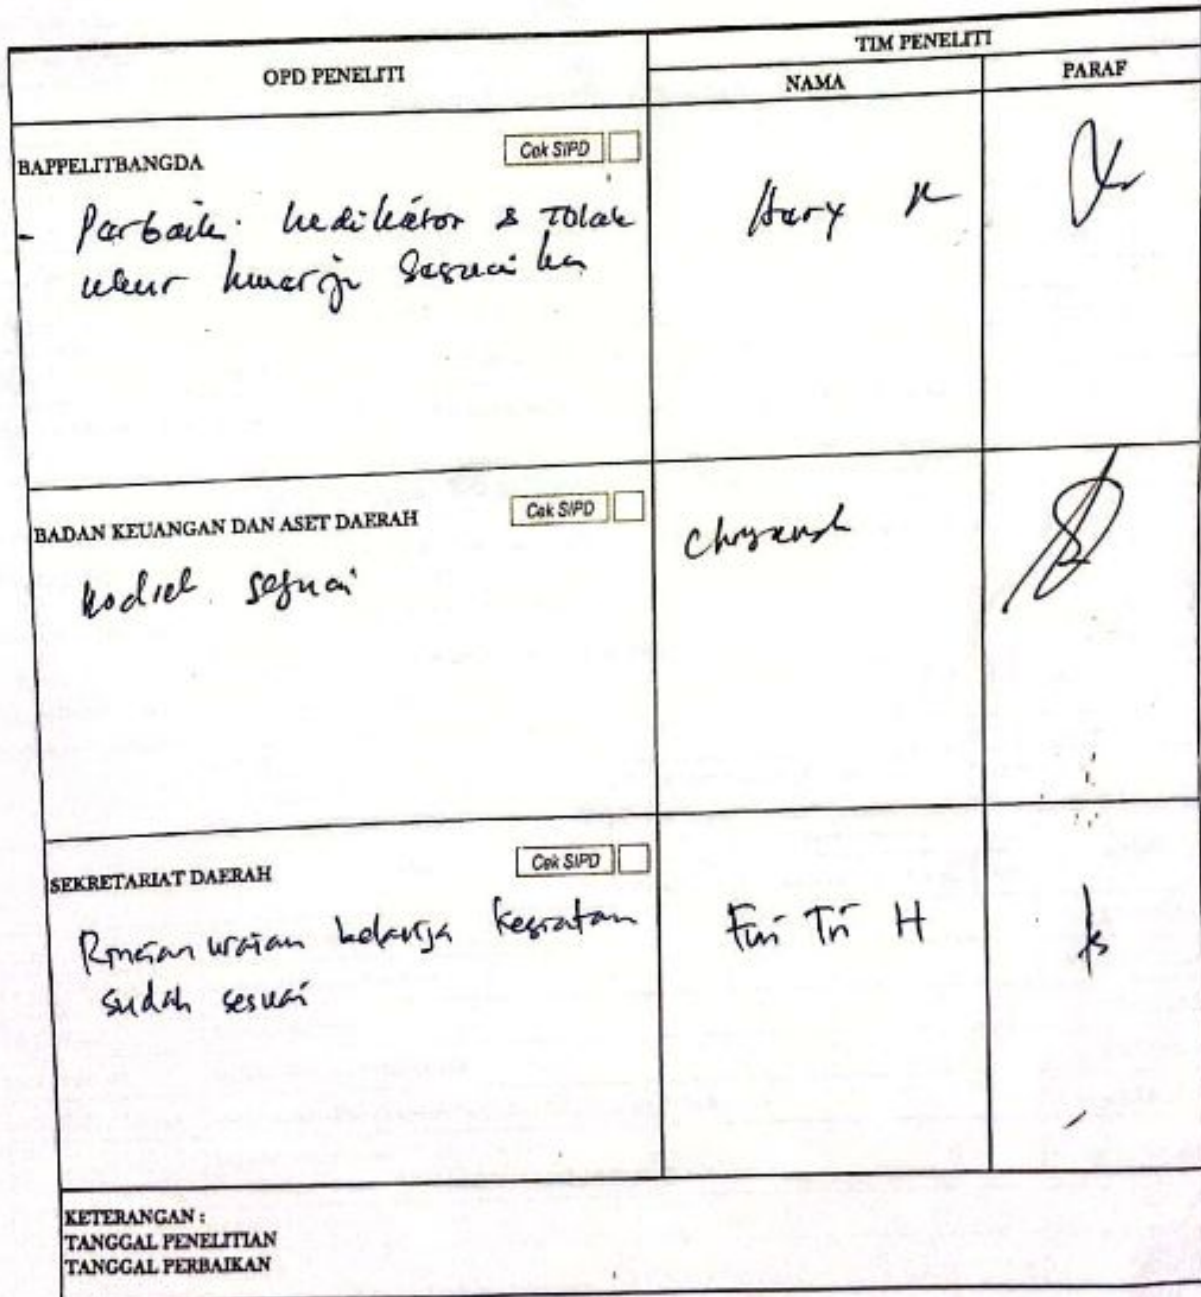 OPD PENELITI
TIM PENELITI
NAMA
PARAF
BAPPELITBANGDA
Cek SIPD
- Perbaiki indikator & Tolak
ukur kinerja sesuaikan
Hary
BADAN KEUANGAN DAN ASET DAERAH
Cek SIPD
kodrek sesuai
SEKRETARIAT DAERAH
Cek SIPD
Rincian uraian belanja kegiatan
sudah sesuai
Tri H
KETERANGAN :
TANGGAL PENELITIAN
TANGGAL PERBAIKAN